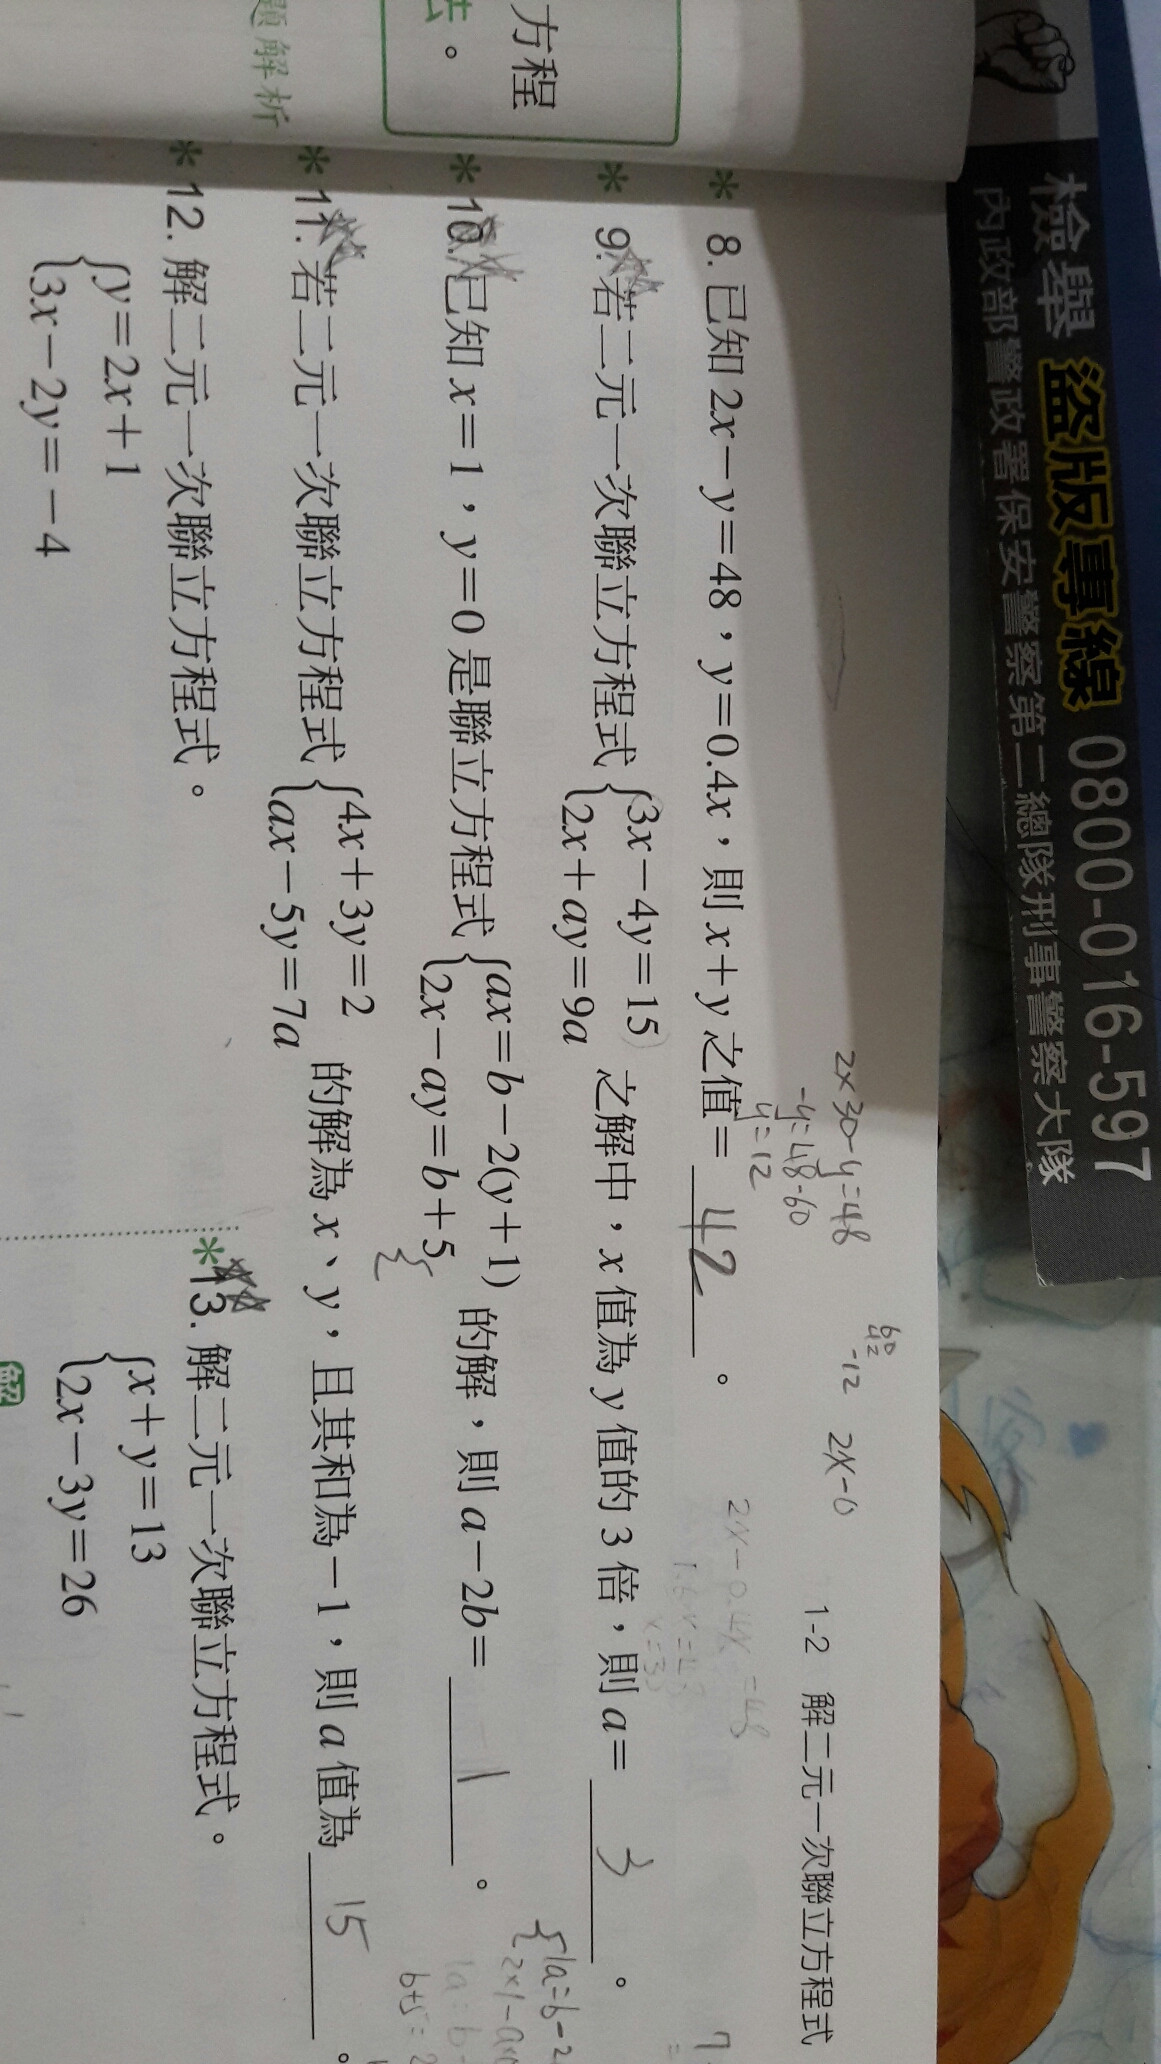 檢舉 盜版專線 0800-016-597
內政部警政署保安警察第二總隊刑事警察大隊
方程
法。
題解析
1-2 解二元一次聯立方程式
2×30-y=48
-y=48-60
y=12
60
42
-12
2x-0
2x-0.4x=48
* 8. 已知 2x-y=48,y=0.4x,則 x+y 之值= 42 。
* 9. 若二元一次聯立方程式 {3x-4y=15
2x+ay=9a 之解中,x 值為 y 值的 3 倍,則 a= 3 。
* 10. 已知 x=1,y=0 是聯立方程式 {ax=b-2(y+1)
2x-ay=b+5 的解,則 a-2b= 。
{1a=b-2
b+5=2
* 11. 若二元一次聯立方程式 {4x+3y=2
ax-5y=7a 的解為 x、y,且其和為-1,則 a 值為 15 。
* 12. 解二元一次聯立方程式。
{y=2x+1
3x-2y=-4
* 13. 解二元一次聯立方程式。
{x+y=13
2x-3y=26
解